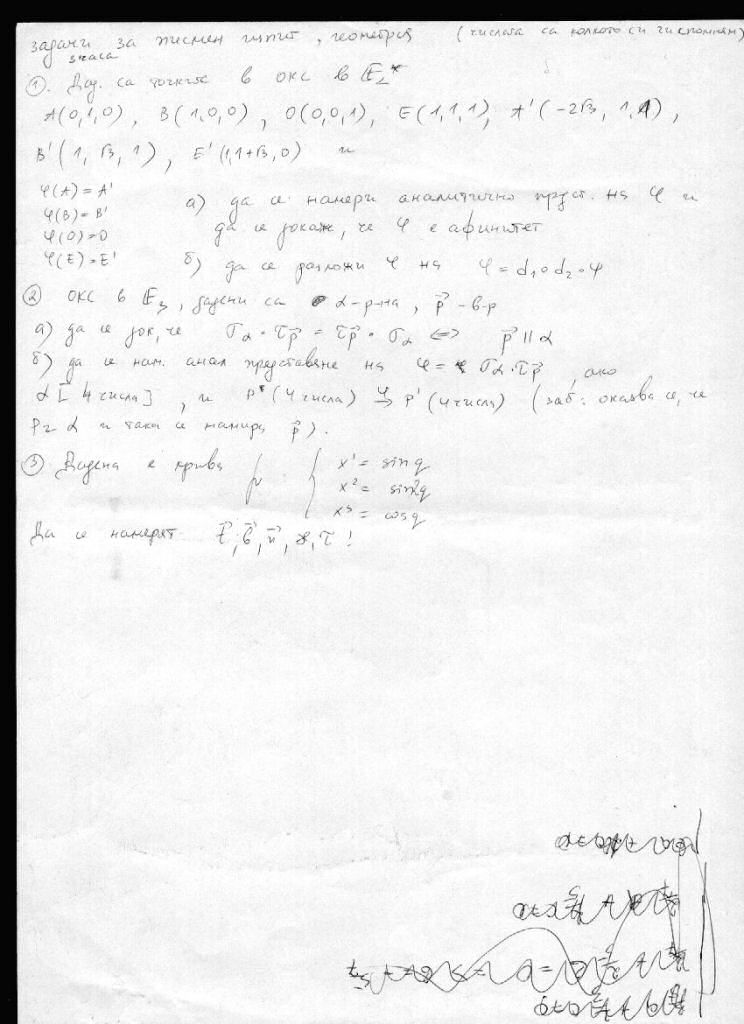 задачи за писмен изпит, геометрия (числата са колкото си ги спомням)
3 часа
① . Дад. са точките в ОКС в E₂*
A(0,1,0), B(1,0,0), O(0,0,1), E(1,1,1), A'(-2√3, 1, 1),
B'(1, √3, 1), E'(1,1+√3,0) и
φ(A) = A'
φ(B) = B'
φ(O) = O
φ(E) = E'
а) да се намери аналитично предст. на φ и
да се докаж, че φ е афинитет
б) да се разложи φ на φ = d₁∘d₂∘φ
② ОКС в E₃, дадени са α-р-на, p⃗ - в-р
а) да се док, че σα ∘ τp⃗ = τp⃗ ∘ σα ⇔ p⃗ || α
б) да се нам. анал представяне на φ = σα∘τp⃗, ако
α[4 числа], и P (4 числа) →φ P' (4 числа) (заб: оказва се, че
P α и така се намира p⃗).
③ Дадена е крива { x¹ = sin q
x² = sin²q
x³ = cos q
Да се намерят t⃗, b⃗, n⃗, ϰ, τ !